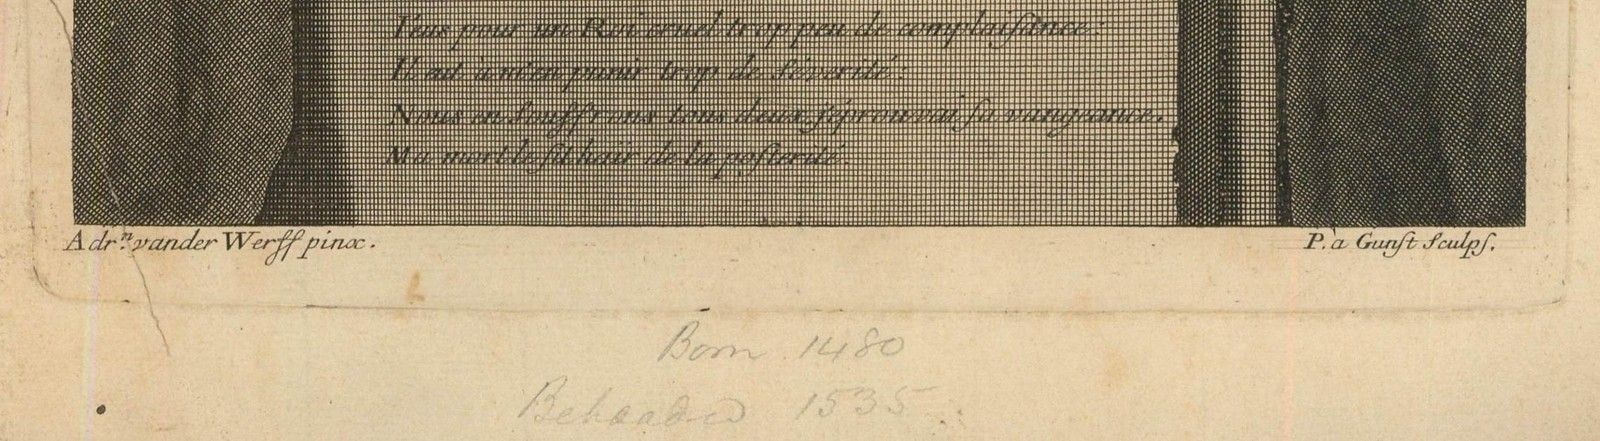 J'eus pour un Roi cruel trop peu de complaiſance:
Il eut à m'en punir trop de ſéverité:
Nous en ſouffrons tous deux, j'éprouvai ſa vangeance.
Ma mort le fit haïr de la poſterité.
Adrⁿ. vander Werff pinx.
P. a Gunſt Sculpſ.
Born 1480
Beheaded 1535